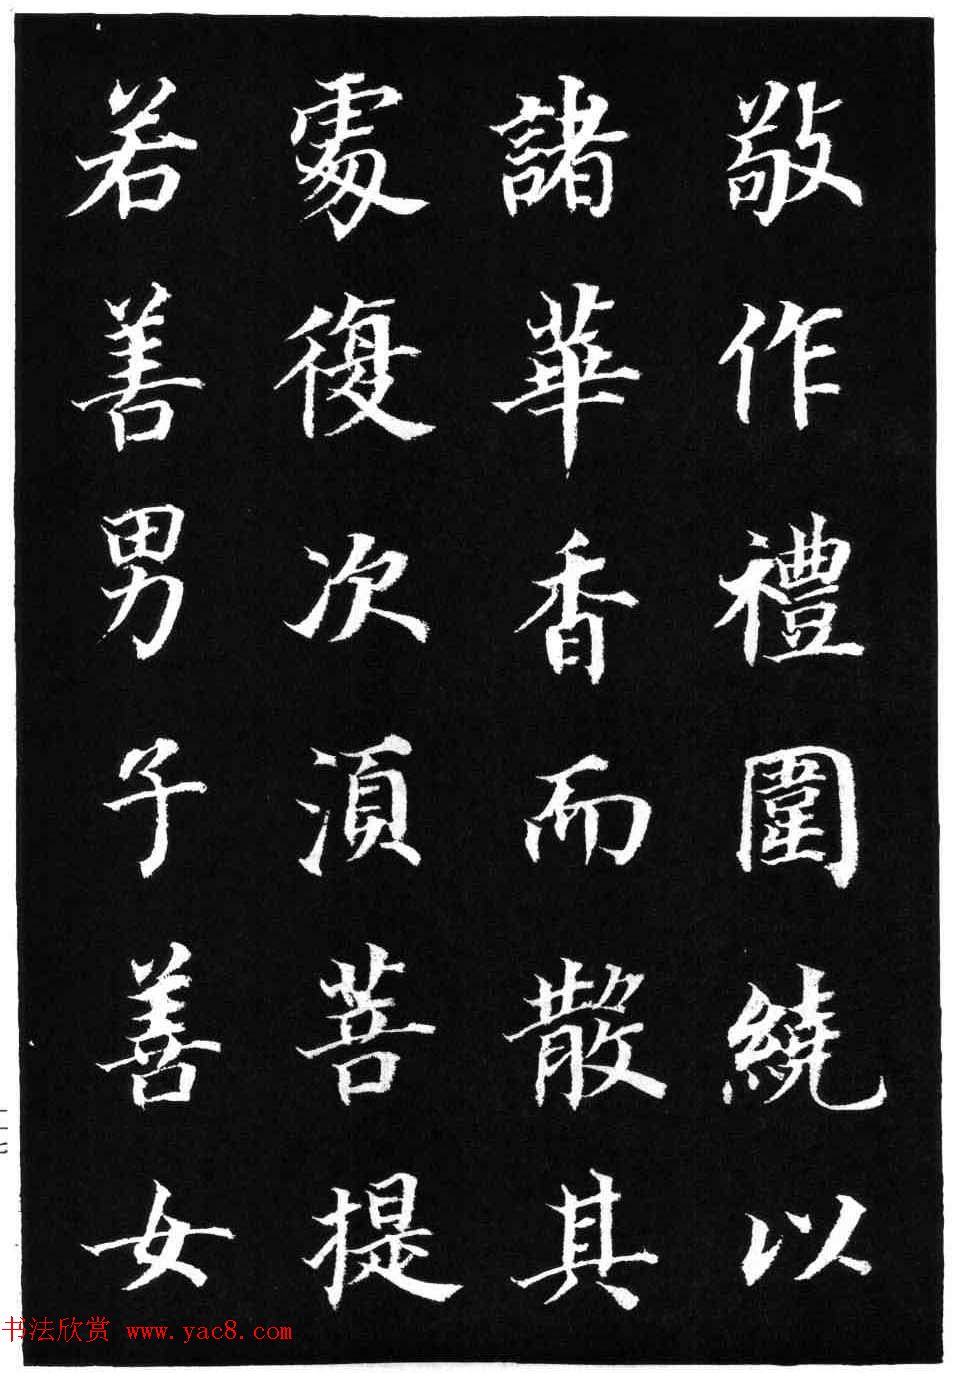 敬作禮圍繞以
諸華香而散其
處復次須菩提
若善男子善女
二十七
书法欣赏 www.yac8.com